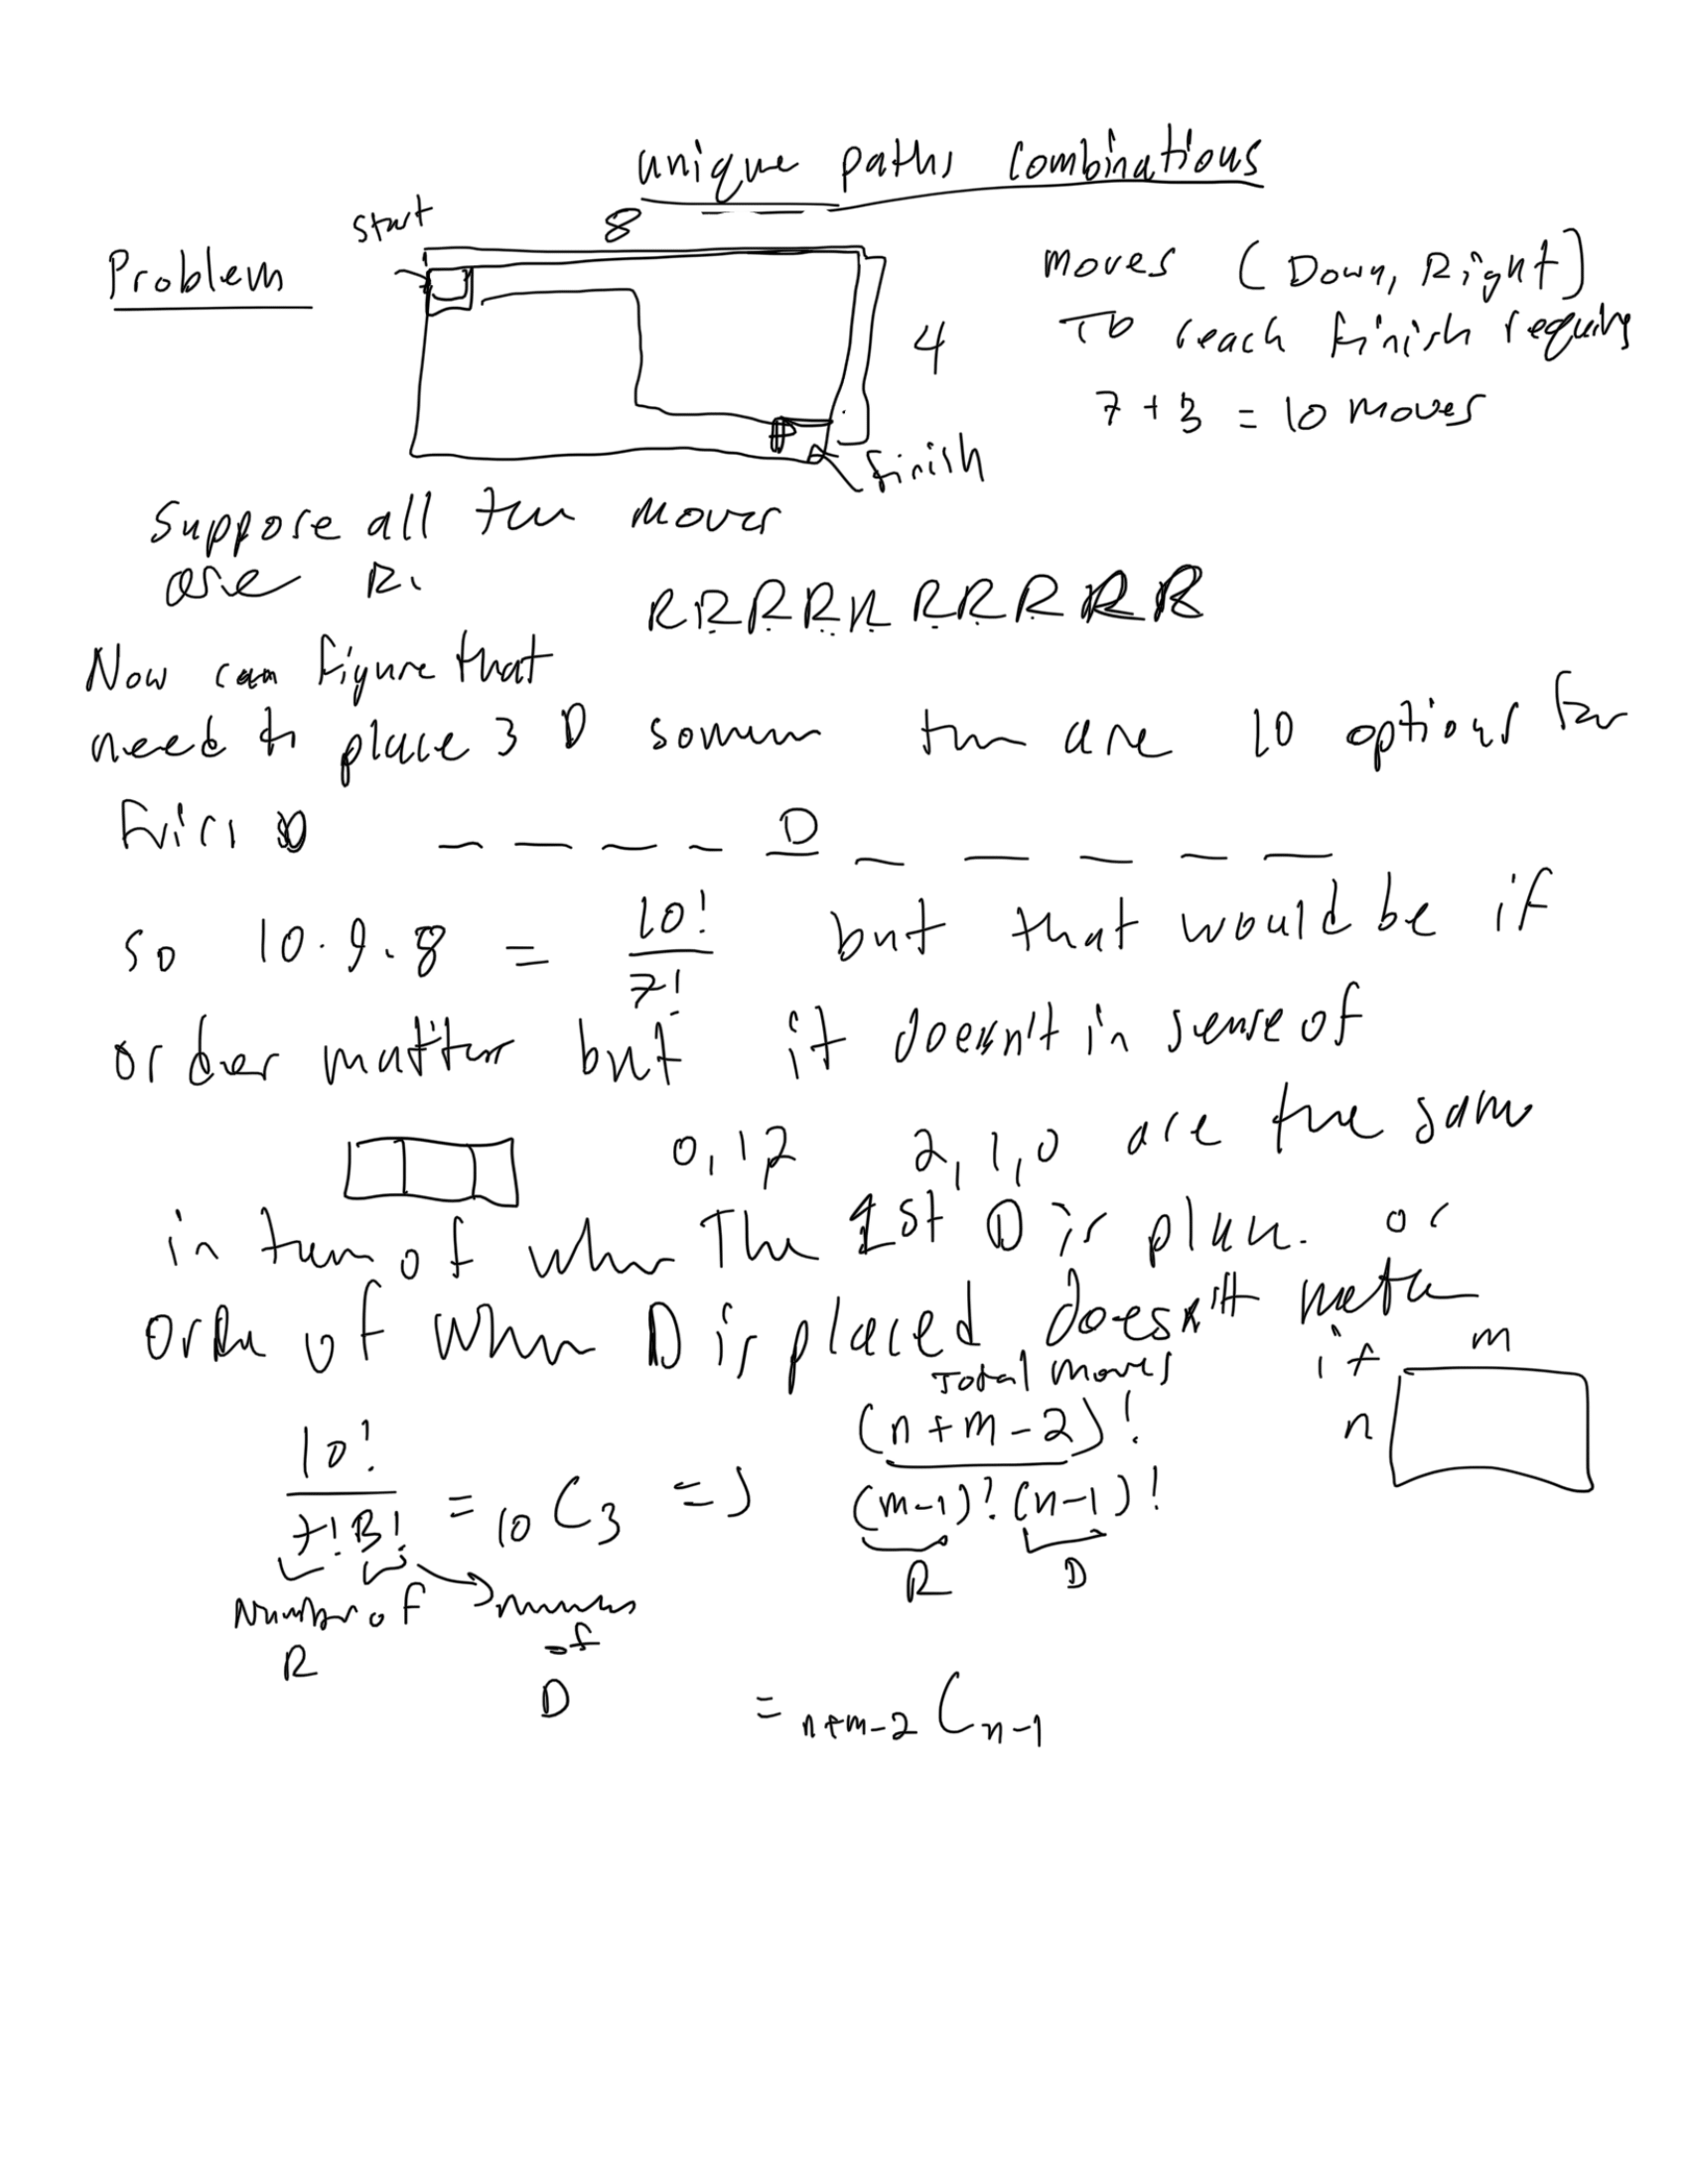 unique paths combinations
start
8
Problem
4
finish
moves (Down, Right)
To reach finish requires
7 + 3 = 10 moves
suppose all ten moves
are R.
R R R R R R R R R R
Now can figure that
need to place 3 D somewhere there are 10 options for
first D _ _ _ _ D _ _ _ _ _
so 10 · 9 · 8 = 10! / 7! but that would be if
order matters but it doesn't in sense of
0, 1, 2 2, 1, 0 are the same
in terms of when The 1st D is place. or
order of when D is placed doesn't matter
10! / 7! 3! = 10 C 3 =>
Number of
R
number
of
D
Total moves
(n + m - 2)! / (m-1)! (n-1)!
R D
if
m
n
= n+m-2 C n-1